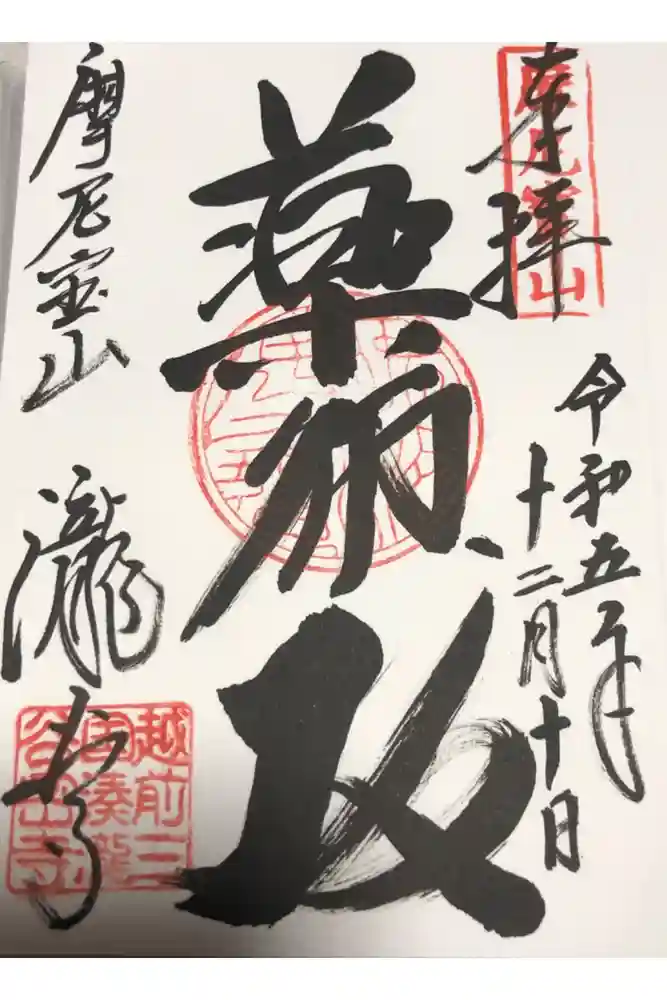 奉拝
摩尼寶山
令和五年
十二月十日
薬師
摩尼宝山
瀧谷寺
越前三
国湊瀧
谷寺